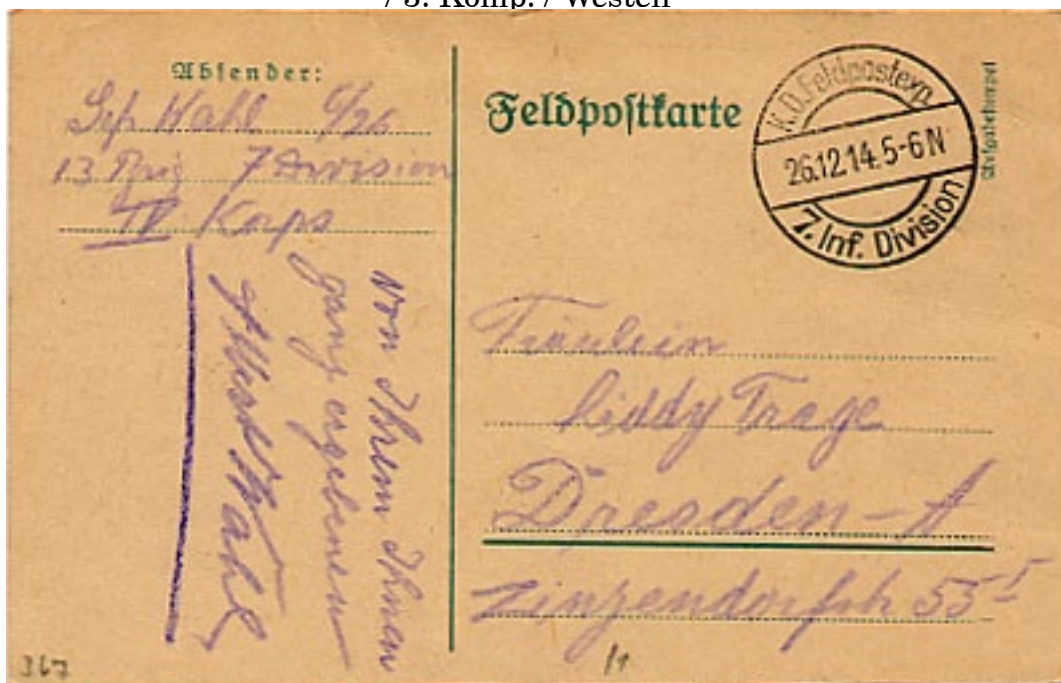 / 3. Komp. / Westen
Absender:
Gef. Wahl 6/26
13 Brig 7 Division
IV Korps
von Ihrem Ihnen
ganz ergebenen
Wahl
Feldpostkarte
K.D. Feldpostexp.
26.12.14.5-6N
7. Inf. Division
Aufgabestempel
Fräulein
Liddy Trage
Dresden-A
Zinzendorfstr 55
367